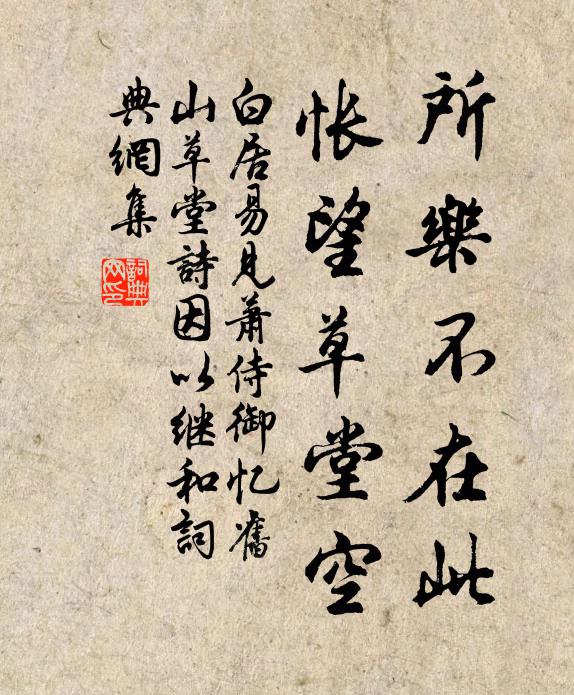 所樂不在此
怅望草堂空
白居易见蕭侍御忆舊
山草堂詩因以继和詞
典網集
詞典
网印